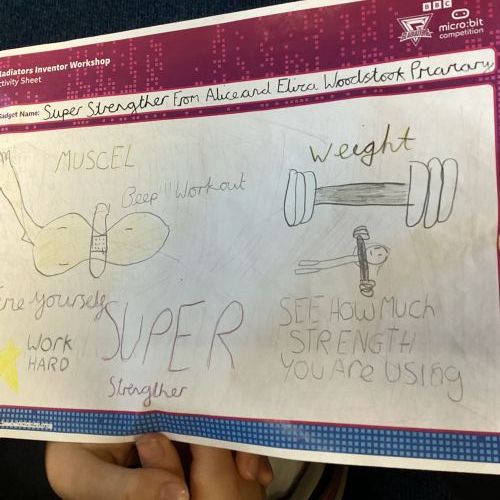 BBC
GLADIATORS
micro:bit
competition
Gladiators Inventor Workshop
Activity Sheet
Gadget Name: Super Strengther From Alice and Eliza Woodstock Prarary
MUSCEL
Weight
Beep!! Workout
yourself
WORK
HARD
SUPER
Strengther
SEE HOW Much
STRENGTH
YOU Are Using